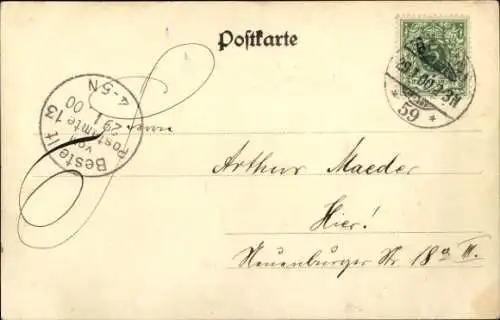 Postkarte
B
29.1.00.2-3N
* 59 *
Bestellt
vom
Postamte 13
29 1
00
4-5N
Herrn
Arthur Maeder
Hier!
Neuenburger Str. 18a III.